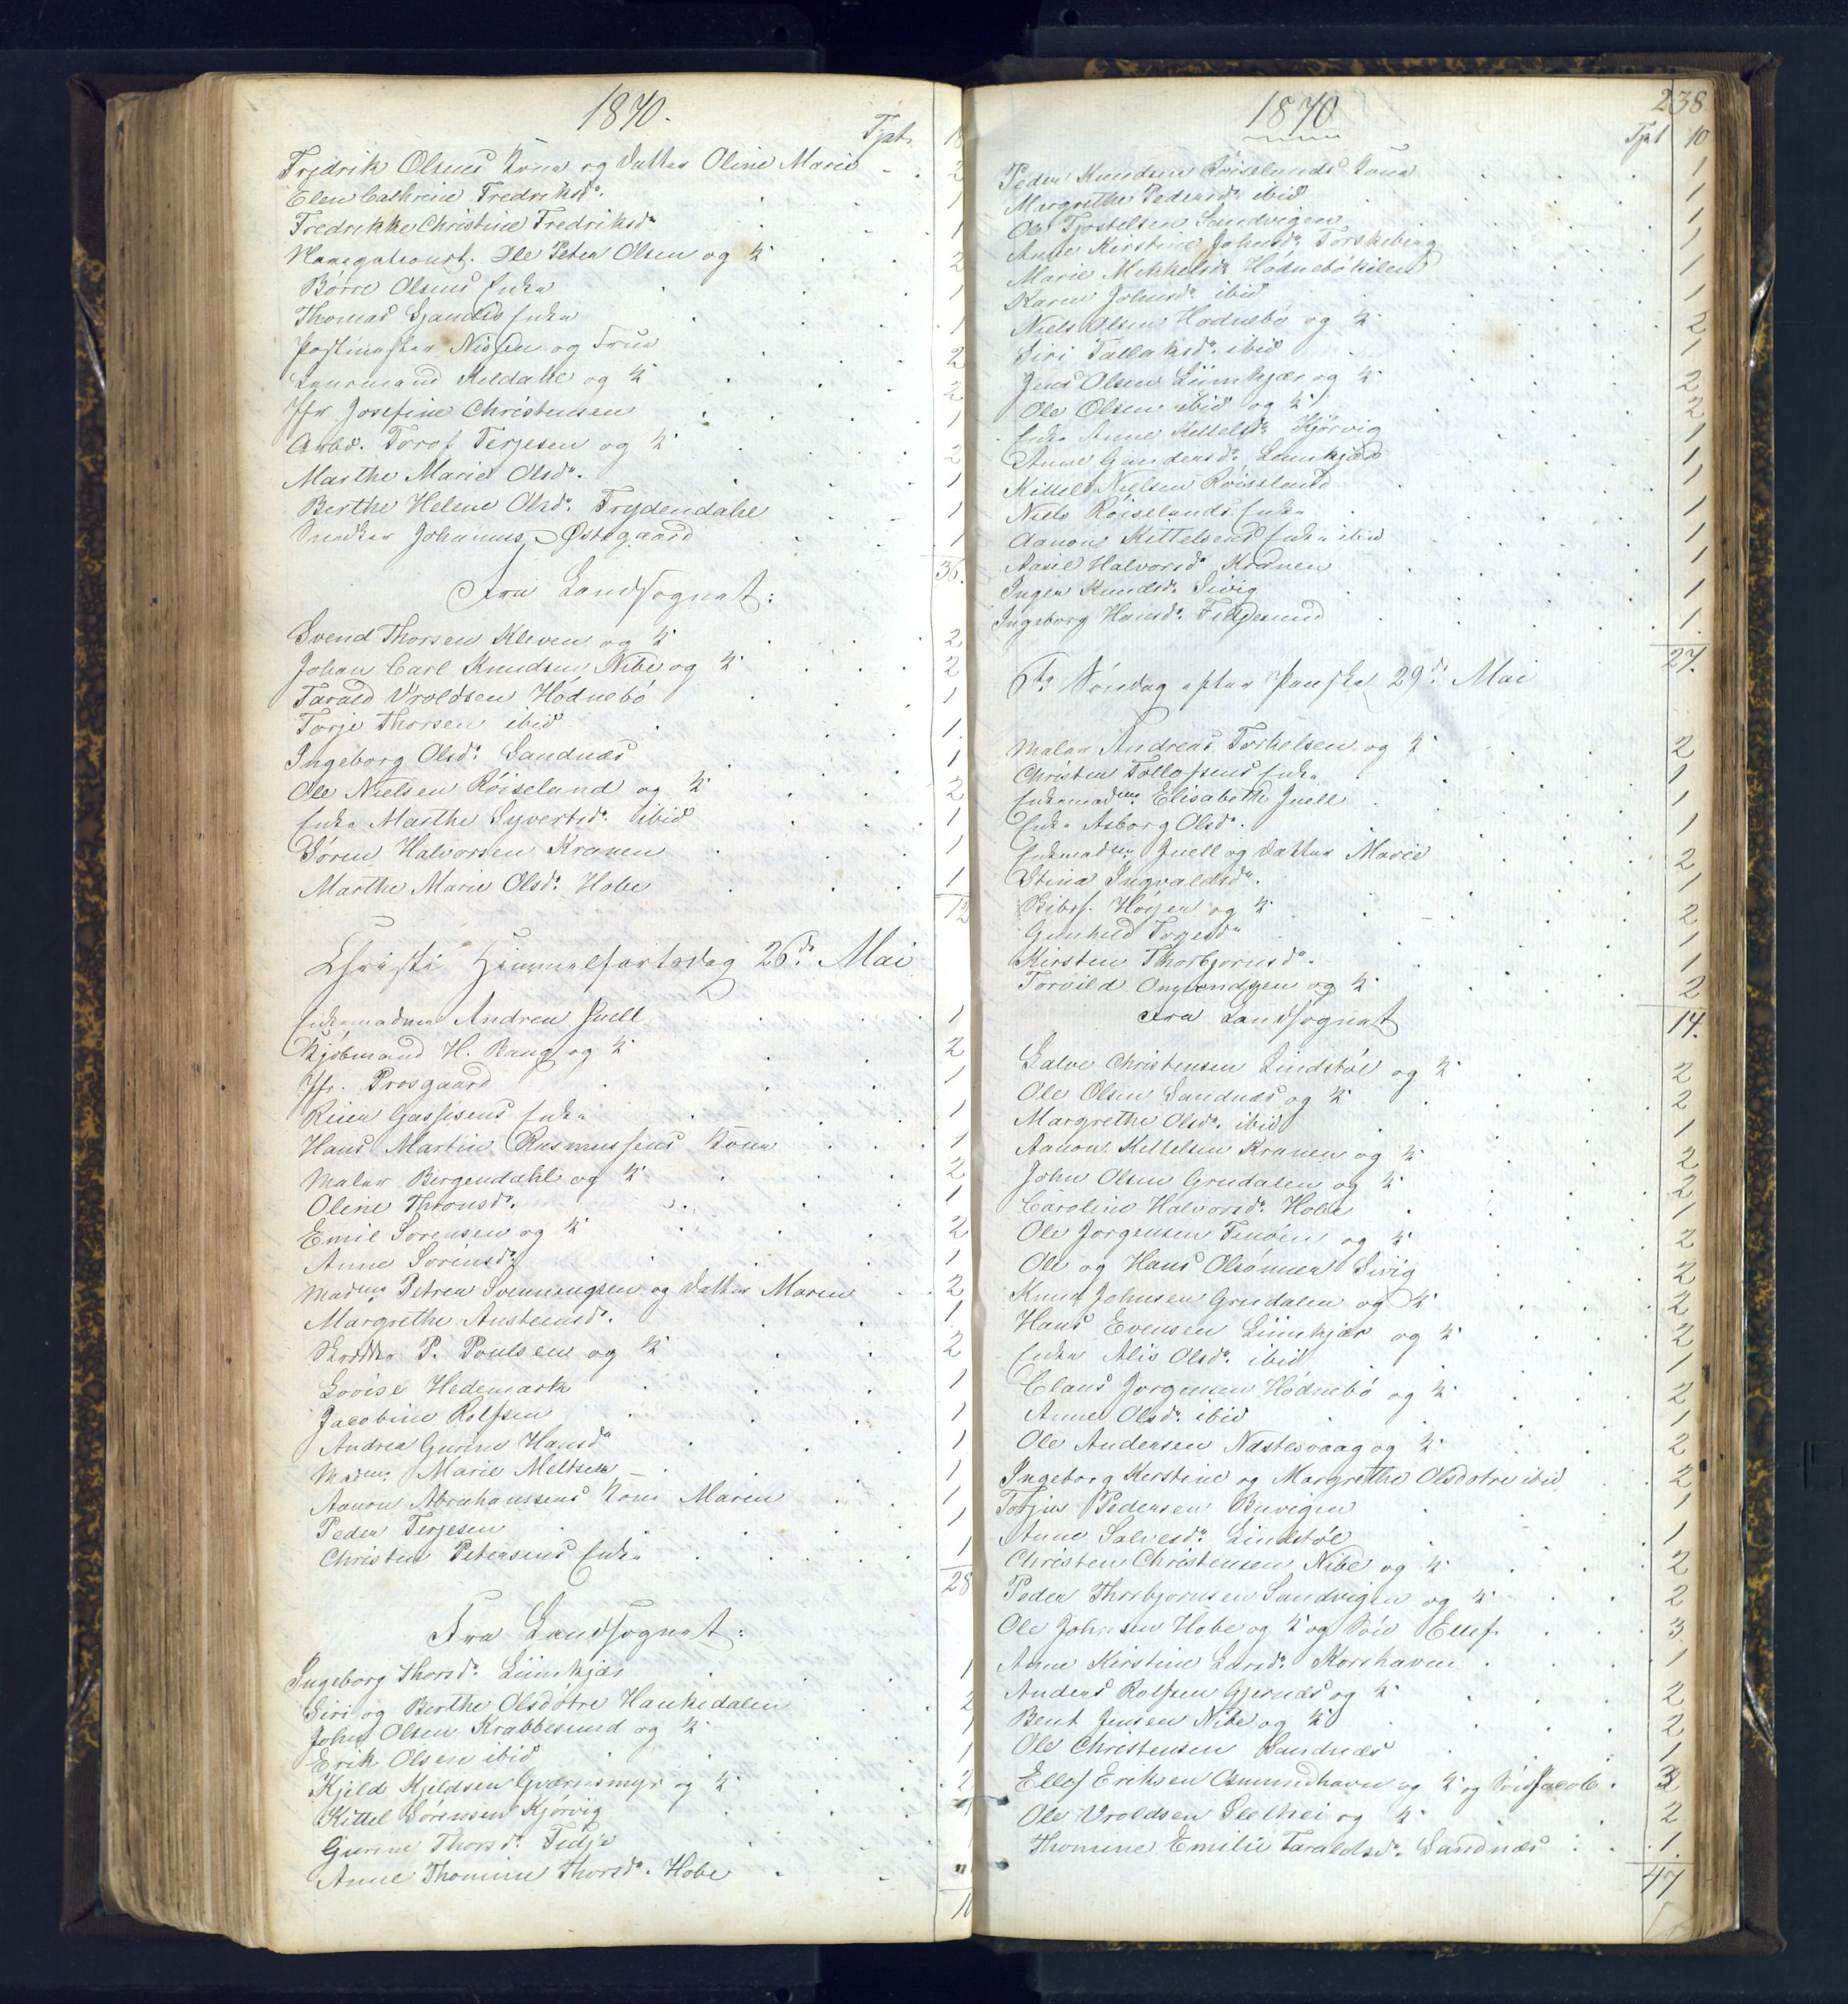 1870.
Tpt. 18
Fredrik Olsens Kone og Datter Oline Marie 2
Elen Cathrine Fredriksdr. 1
Fredrikke Christine Fredriksdr 1
Ole Peter Olsen og K. 2
Börre Olsens Enke 1
Thomas Enke 1
Postmester Nissen og Frue 2
Kildahl og K. 2
Jfr Josefine Christensen 1
Arbd. Torof Terjesen og K. 2
Marthe Marie Olsdr. 1
Berthe Helene Olsdr. Frydendahl 1
Snedker Johannes Østegaard 1
36.
Fra Landsognet:
Svend Thorsen Kleven og K. 2
Johan Carl Knudsen Nibe og K. 2
Tarald Vroldsen Hödnebö 1
Terje Thorsen ibid 1.
Ingeborg Olsdr. Sandnæs 1
Ole Nielsen Röiseland og K. 2
Enke Marthe Syvertsdr. ibid 1
Sören Halvorsen Kranen 1
Marthe Marie Olsdr. Hobe 1
12
Christi Himmelfartsdag 26de Mai
Enkemadme Andrea Juell 1
Kjöbmand H. Bang og K. 2
Jfr. Prosgaard 1
Enke 1
Hans Martin Rasmussens Kone 1
Maler Bergendahl og K. 2
Oline Thronsdr. 1
Emil Sörensen og K. 2
Anne Sörensdr. 1
Madme Petrea Svenningsen og Datter Maren 2
Margrethe Austensdr. 1.
Skrædder P. Poulsen og K. 2
Lovise Hedemark 1
Jacobine Rolfsen 1
Andrea Gurine Hansdr 1
Madme Marie Meltsen 1
Aanon Abrahamsens Kone Maren 1
Peder Terjesen 1
Christen Petersens Enke 1
28
Fra Landsognet:
Ingeborg Thorsdr. Liimkjær 1
Siri og Berthe Olsdötre Haukedalen 2
John Olsen Krabbesund og K.
Erik Olsen ibid 1
Kjeld Kjeldsen Qværnsmyr og K. 2
Kittel Sörensen Kjörvig 1
Gurine Thorsdr. Fidje
Anne Thomine Thorsdr. Hobe
1870
238
Tpt 10
Peder Knudsen Röiselands Kone 1
Margrethe Pedersdr. ibid 1
Ole Tjostelsen Sandvigen 1
Anne Kirstine Johnsdr. Torskeberg 1
Marie Mikkelsdr Hödnebökilen 1
Karen Johnsdr. ibid 1
Niels Olsen Hödnebö og K. 2
Siri Tallaksdr. ibid 1
Jens Olsen Liimkjær og K. 2
Ole Olsen ibid og K. 2
Enke Anne Kittelsdr. Kjörvig 1
Anne Gundersdr. Liimkjær 1
Kittel Nielsen Röiseland 1
Niels Röiselands Enke 1
Aanon Kittelsens Enke ibid 1
Aasil Halvorsdr Kranen 1
Inger Knudsdr. Sivig 1
Ingeborg Hansdr. 1.
27.
5te Söndag efter Paaske 29de Mai
Maler Andreas Torkelsen og K. 2
Christen Tollofsens Enke 1
Enkemadme Elisabeth Juell 1
Enke Asborg Olsdr. 1
Enkemadme Juell og Datter Marie 2
Stina Ingvaldsdr. 1
Höyer og K. 2
Gunhild Terjesdr 1
Kirsten Thorbjornsdr. 1
Torvild og K. 2
14.
Fra Landsognet
Salve Christensen Lindstöl og K. 2
Ole Olsen Sandnæs og K. 2
Margrethe Olsdr. ibid 1
Aanon Kittelsen Kranen og K. 2
John Olsen Grudalen og K. 2
Caroline Halvorsdr. Hobe 1
Ole Jorgensen Finöen og K. 2
Ole og Hans Olsönner Sivig 2
Knud Johnsen Grudalen og K. 2
Hans Evensen Liimkjær og K. 2
Enke Alis Olsdr. ibid 1
Claus Jorgensen Hödnebö og K. 2
Anne Olsdr. ibid 1
Ole Andersen Næstesvaag og K. 2
Ingeborg Kerstine og Margrethe Olsdotre ibid 2
Torjus Pedersen Buvigen 1
Anne Salvesdr. Lindstöl 1
Christen Christensen Nibe og K. 2
Peder Thorbjornsen Sandvigen og K. 2
Ole Johnsen Hobe og K og Sön Ellef 3
Anne Kirstine Larsdr. Korshavn 1
Anders Rolfsen Gjernæs og K. 2
Bent Jensen Nibe og K. 2
Ole Christensen Sandnæs 1
Ellef Eriksen Osmundhavn og K. og Sön Jacob. 3
Ole Vroldsen Slethei og K. 2
Thomine Emilie Taraldsdr. Sandnæs 1.
47